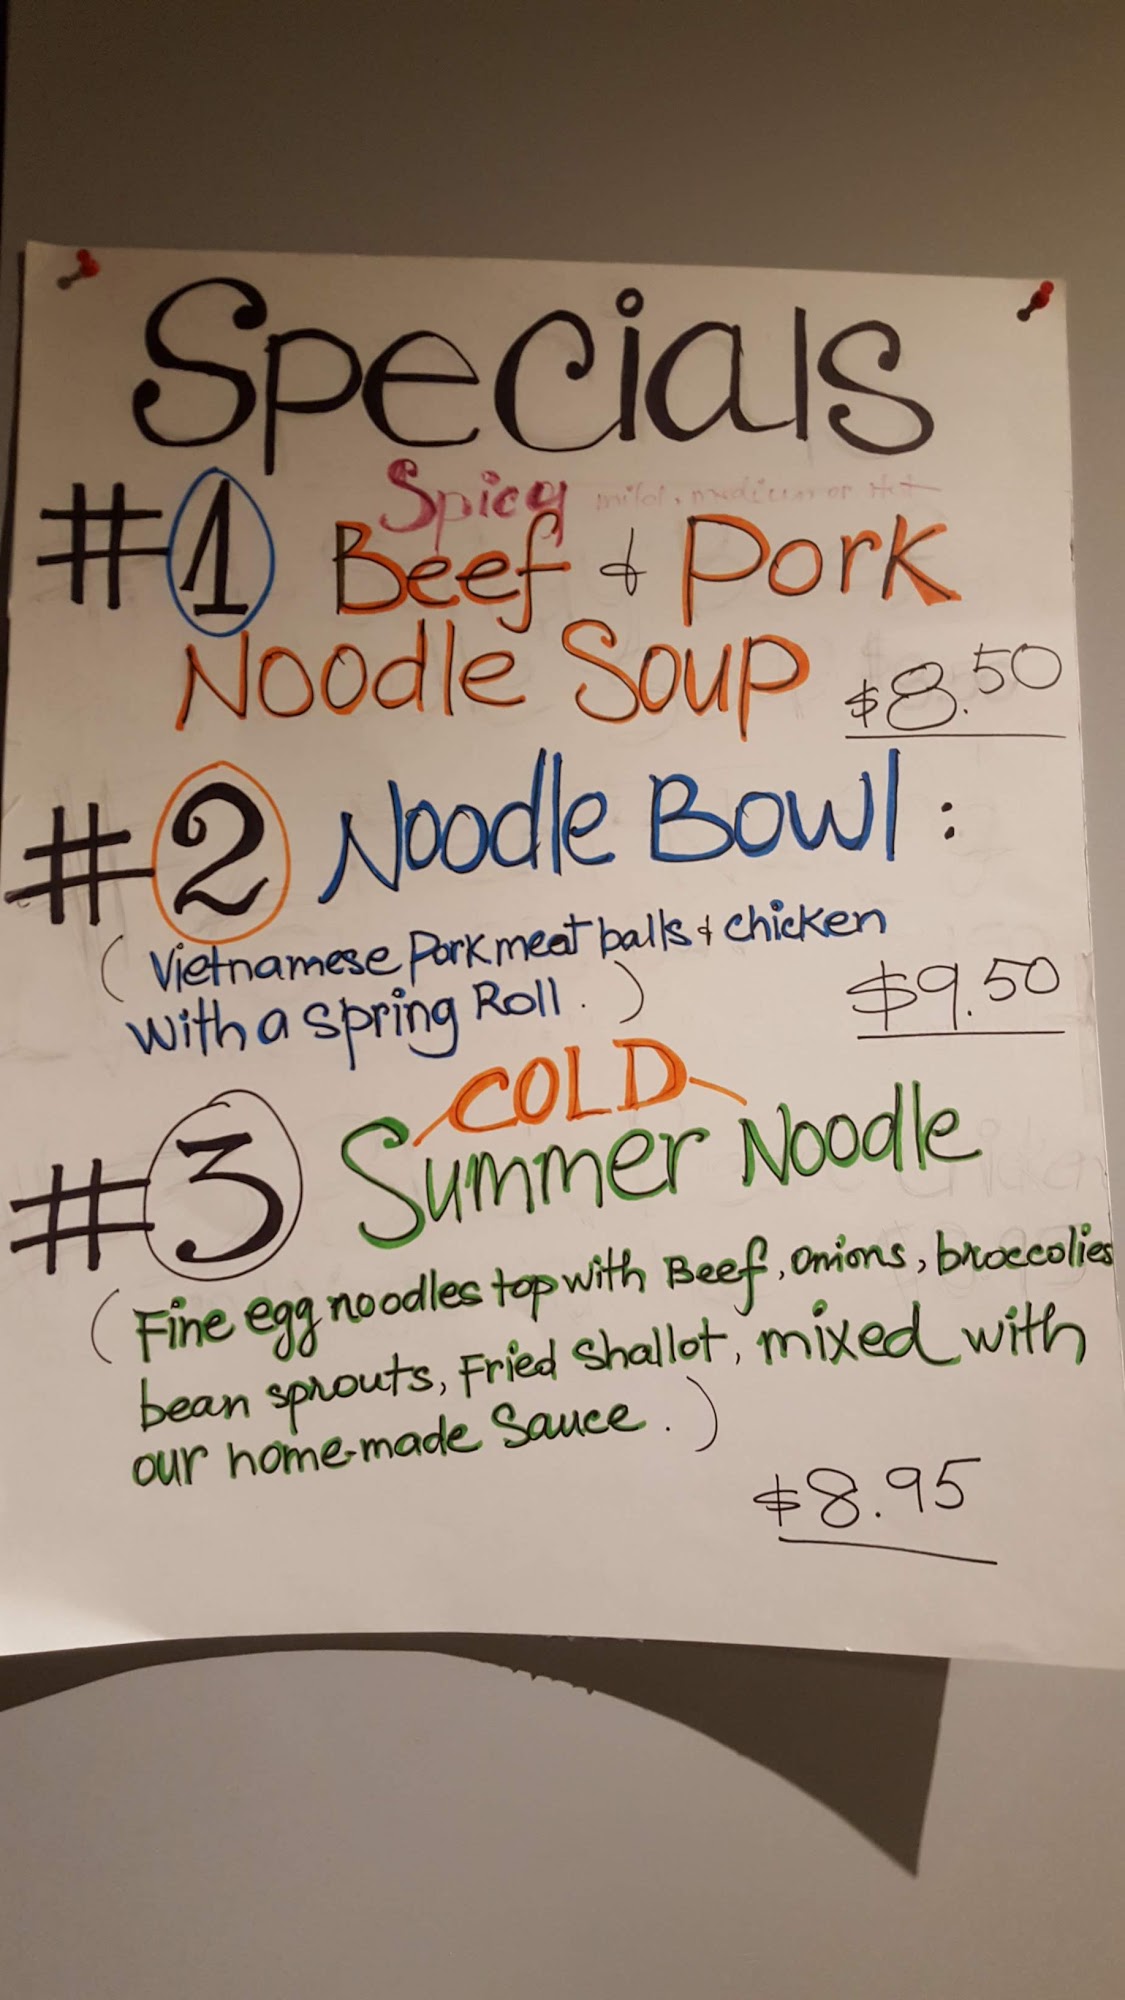 Specials
#1 Spicy mild, medium or Hot
Beef & Pork
Noodle Soup $8.50
#2 Noodle Bowl:
(Vietnamese Pork meat balls & chicken
with a spring Roll.) $9.50
COLD
#3 Summer Noodle
(Fine egg noodles top with Beef, onions, broccolies
bean sprouts, Fried Shallot, mixed with
our home-made Sauce.)
$8.95